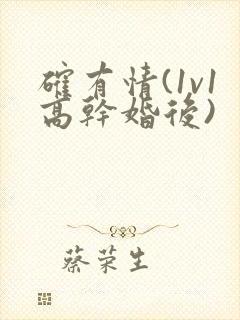 確有情(1v1
高幹婚後)
蔡荣生